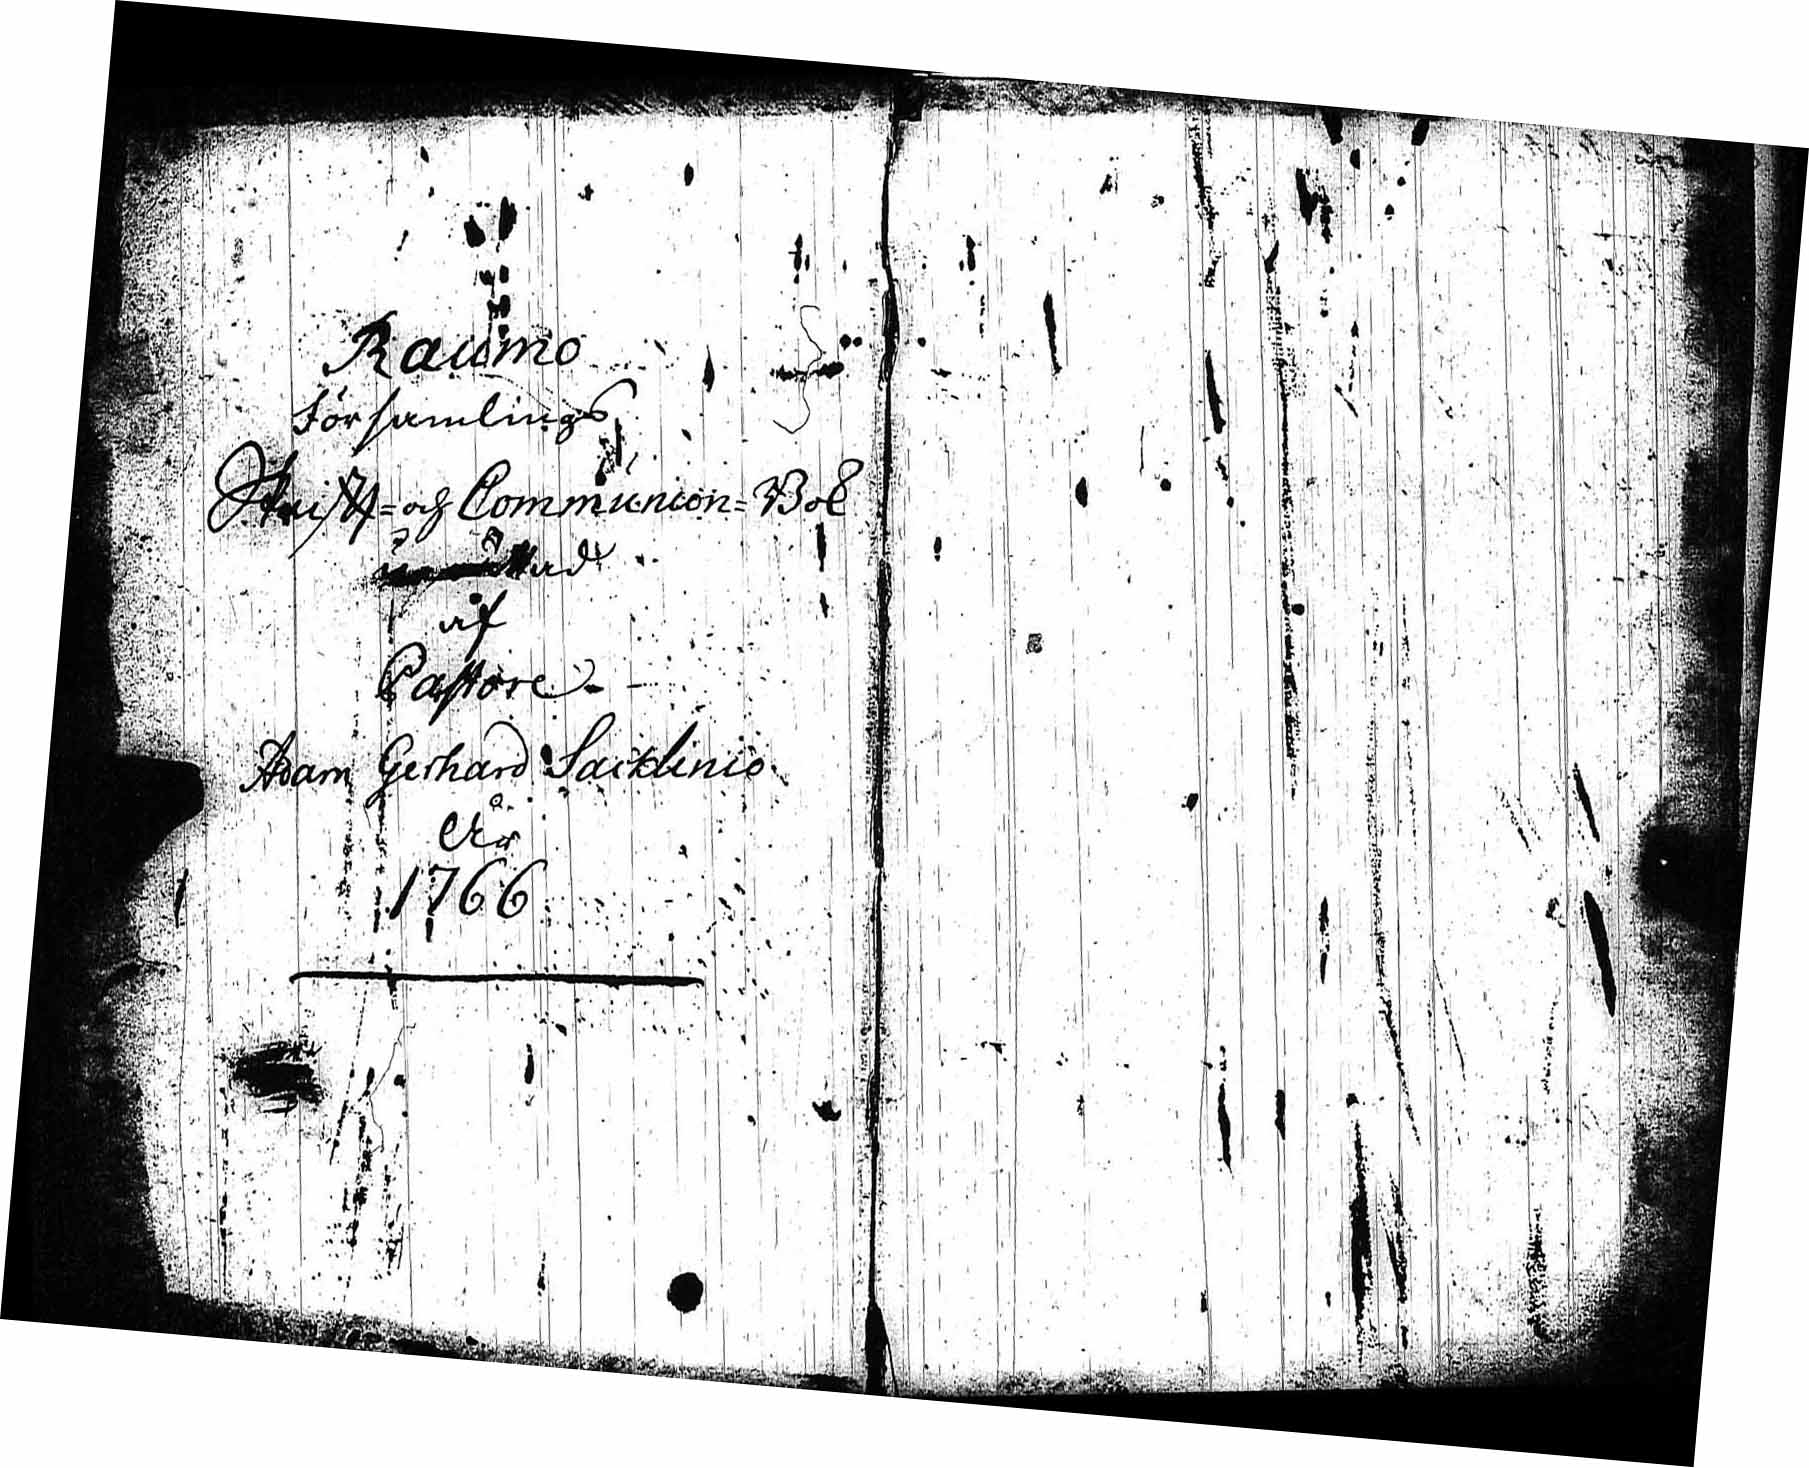 Raumo
Församlings
Skrifft= och Communion= Bok
af
Pastore
Adam Gerhard Sacklinio
År
1766